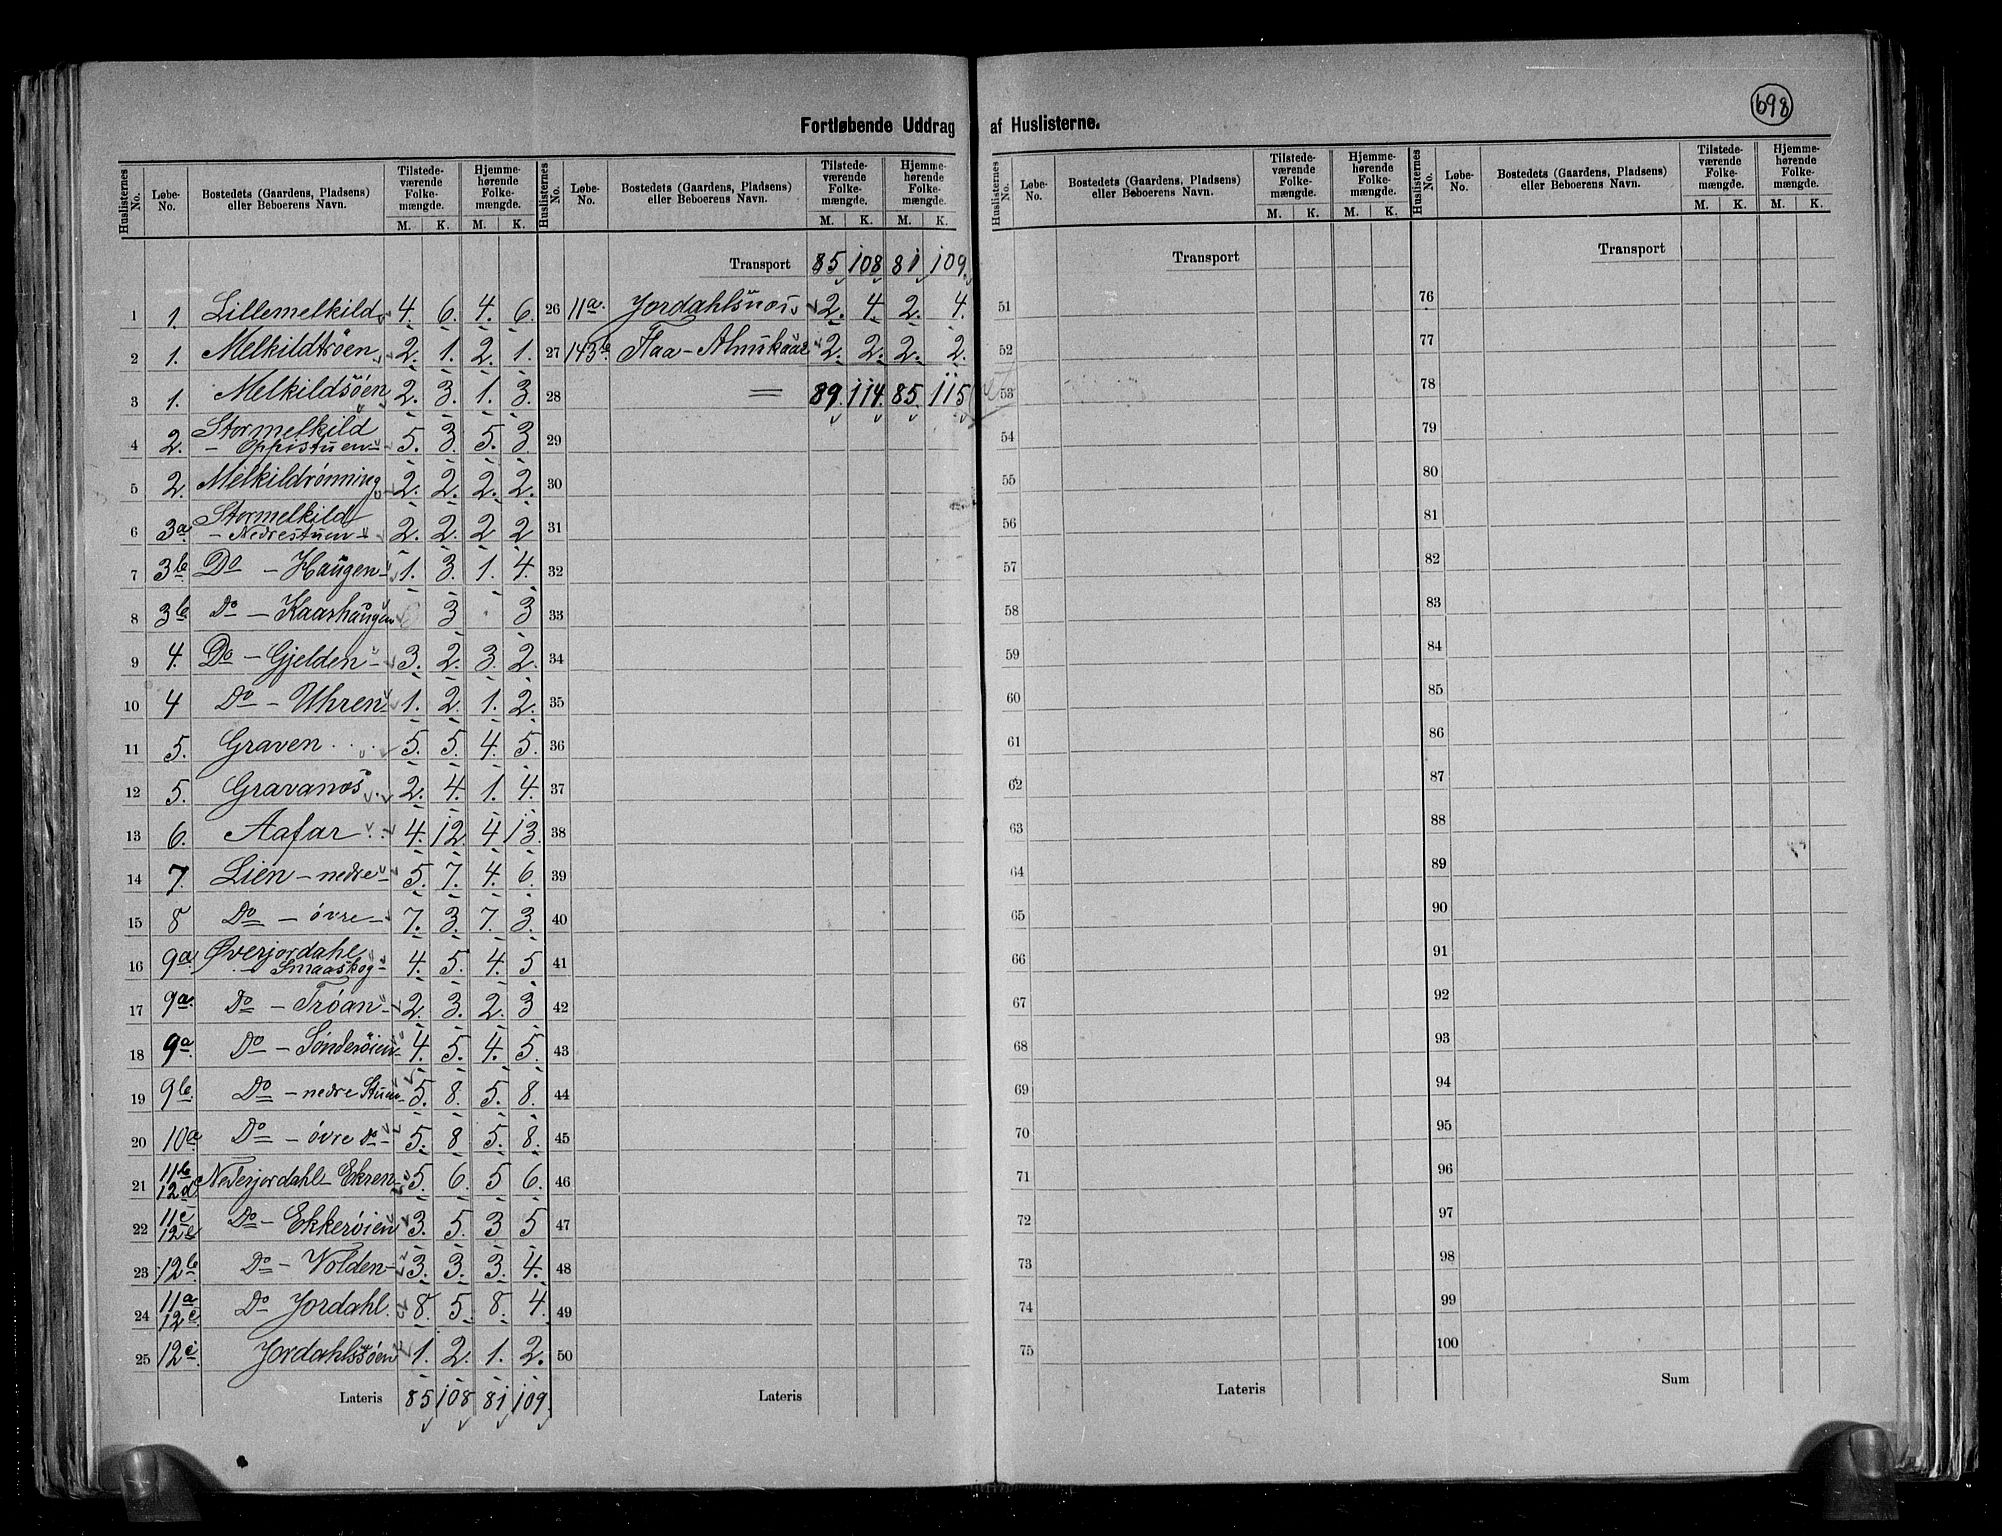 698
Fortløbende Uddrag af Huslisterne.
Huslisternes No. Løbe-No. Bostedets (Gaardens, Pladsens) eller Beboerens Navn. Tilstedeværende Folkemængde. M. K. Hjemmehørende Folkemængde. M. K.
1 1. Lillemelkild 4. 6. 4. 6.
2 1. Melkildtrøen 2. 1. 2. 1.
3 1. Melkildsøen 2. 3. 1. 3.
4 2. Stormelkild - Oppistuen - 5. 3. 5. 3.
5 2. Melkildrønning 2. 2. 2. 2.
6 3a Stormelkild - Nedrestuen - 2. 2. 2 2
7 3b Do - Haugen - 1. 3. 1. 4.
8 3b Do - Kaarhaugen 3 . 3
9 4. Do - Gjelden - 3. 2. 3. 2.
10 4 Do - Uhren - 1. 2. 1. 2.
11 5. Graven 5. 5. 4. 5.
12 5. Gravanøs 2. 4. 1. 4.
13 6. Aafar 4. 12. 4. 13.
14 7. Lien - nedre - 5. 7. 4. 6.
15 8 Do - øvre - 7. 3. 7. 3.
16 9a. Øverjordahl - Smaaskog - 4. 5. 4. 5
17 9a. Do - Trøan - 2. 3. 2. 3
18 9a. Do - Sønderøien - 4. 5. 4. 5.
19 9b. Do - nedre Stuen - 5. 8. 5. 8.
20 10a Do - øvre Do - 5. 8 5. 8.
21 11b 12d Nederjordahl - Ekren - 5. 6. 5 6.
22 11c 12e Do - Ekkerøien 3. 5. 3 5
23 12b Do - Volden - 3. 3. 3. 4.
24 11a 12c Do Jordahl. 8. 5. 8. 4.
25 12c Jordahlssøen 1. 2. 1. 2.
Lateris 85 108 81 109.
Huslisternes No. Løbe-No. Bostedets (Gaardens, Pladsens) eller Beboerens Navn. Tilstedeværende Folkemængde. M. K. Hjemmehørende Folkemængde. M. K.
Transport 85 108 81 109.
26 11a. Jordahlsnøs 2. 4. 2. 4.
27 143b Flaa - Almskaar 2. 2. 2. 2.
28 = 89. 114. 85. 115
29
30
31
32
33
34
35
36
37
38
39
40
41
42
43
44
45
46
47
48
49
50
Lateris
Huslisternes No. Løbe-No. Bostedets (Gaardens, Pladsens) eller Beboerens Navn. Tilstedeværende Folkemængde. M. K. Hjemmehørende Folkemængde. M. K.
Transport
51
52
53
54
55
56
57
58
59
60
61
62
63
64
65
66
67
68
69
70
71
72
73
74
75
Lateris
Huslisternes No. Løbe-No. Bostedets (Gaardens, Pladsens) eller Beboerens Navn. Tilstedeværende Folkemængde. M. K. Hjemmehørende Folkemængde. M. K.
Transport
76
77
78
79
80
81
82
83
84
85
86
87
88
89
90
91
92
93
94
95
96
97
98
99
100
Sum